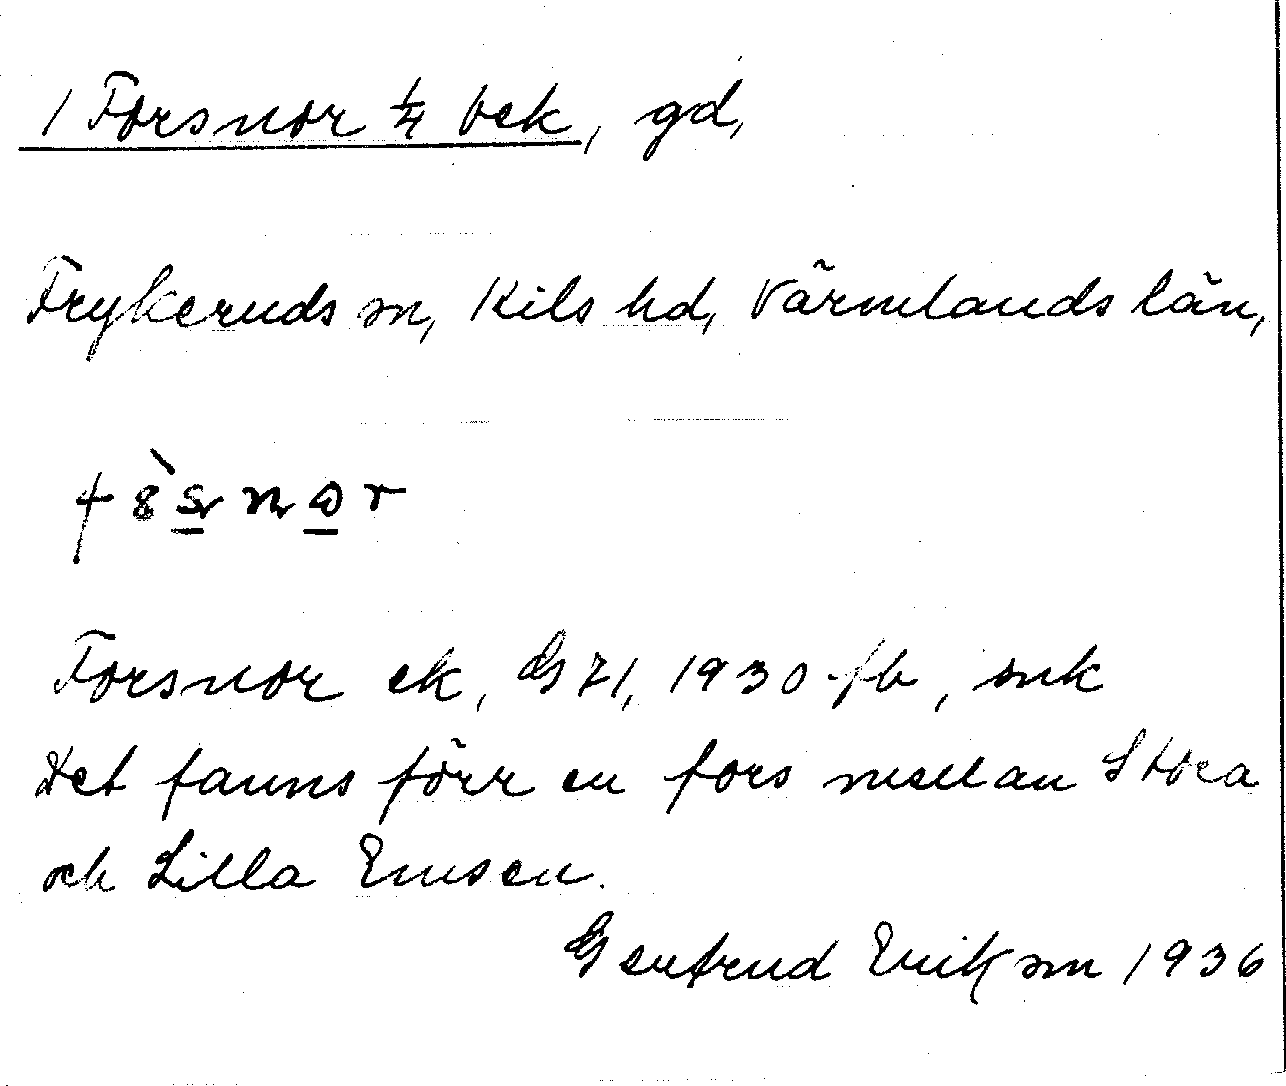 1 Forsnor 1/4 bek, gd,
Frykeruds sn, Kils hd, Värmlands län,
Forsnor ek, G 71, 1930 fb, snk
Det fanns förr en fors mellan Stora
och Lilla Emsen.
Gertrud Eriksson 1936